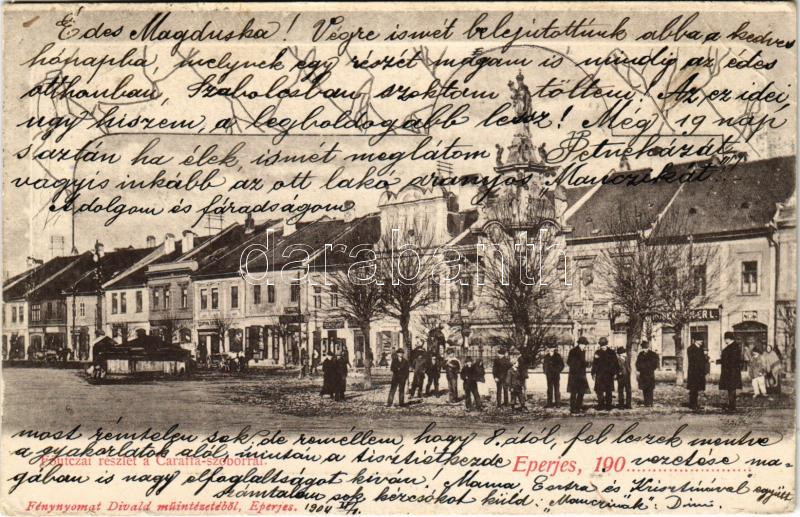 Édes Magduska! Végre ismét belejutottunk abba a kedves
hónapba, melynek egy részét magam is mindig az édes
otthonban, Szabolcsban szoktam tölteni! Az ez idei,
úgy hiszem, a legboldogabb lesz! Még 19 nap
s aztán ha élek ismét meglátom Petneházát
vagyis inkább az ott lakó aranyos Manczikát.
A dolgom és fáradságom
darabanth
most zérntelen sok, de remélem, hogy 8.ától, fel leszek mentve
a gyakorlatok alól, mintán a tisztiétkezde vezetése ma-
Főutczai részlet a Caraffa-szoborral.
Eperjes, 190
gában is nagy elfoglaltságot kiván. Mama Esztra és Krisztinával együtt
számtalan sok kézcsókot küld: "Manczinak":
Fénynyomat Divald műintézetéből, Eperjes. 1904